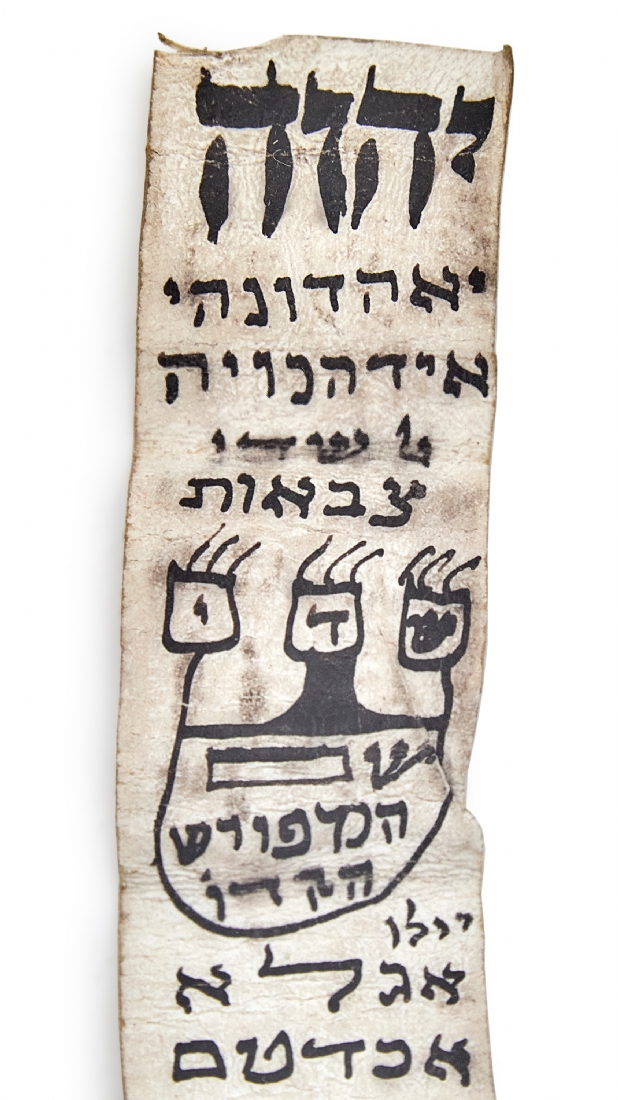 יהוה
יאהדונהי
אידהנויה
שדי
צבאות
ש ד י
שם
המפורש
הקדו'
אגלא
אכדטם